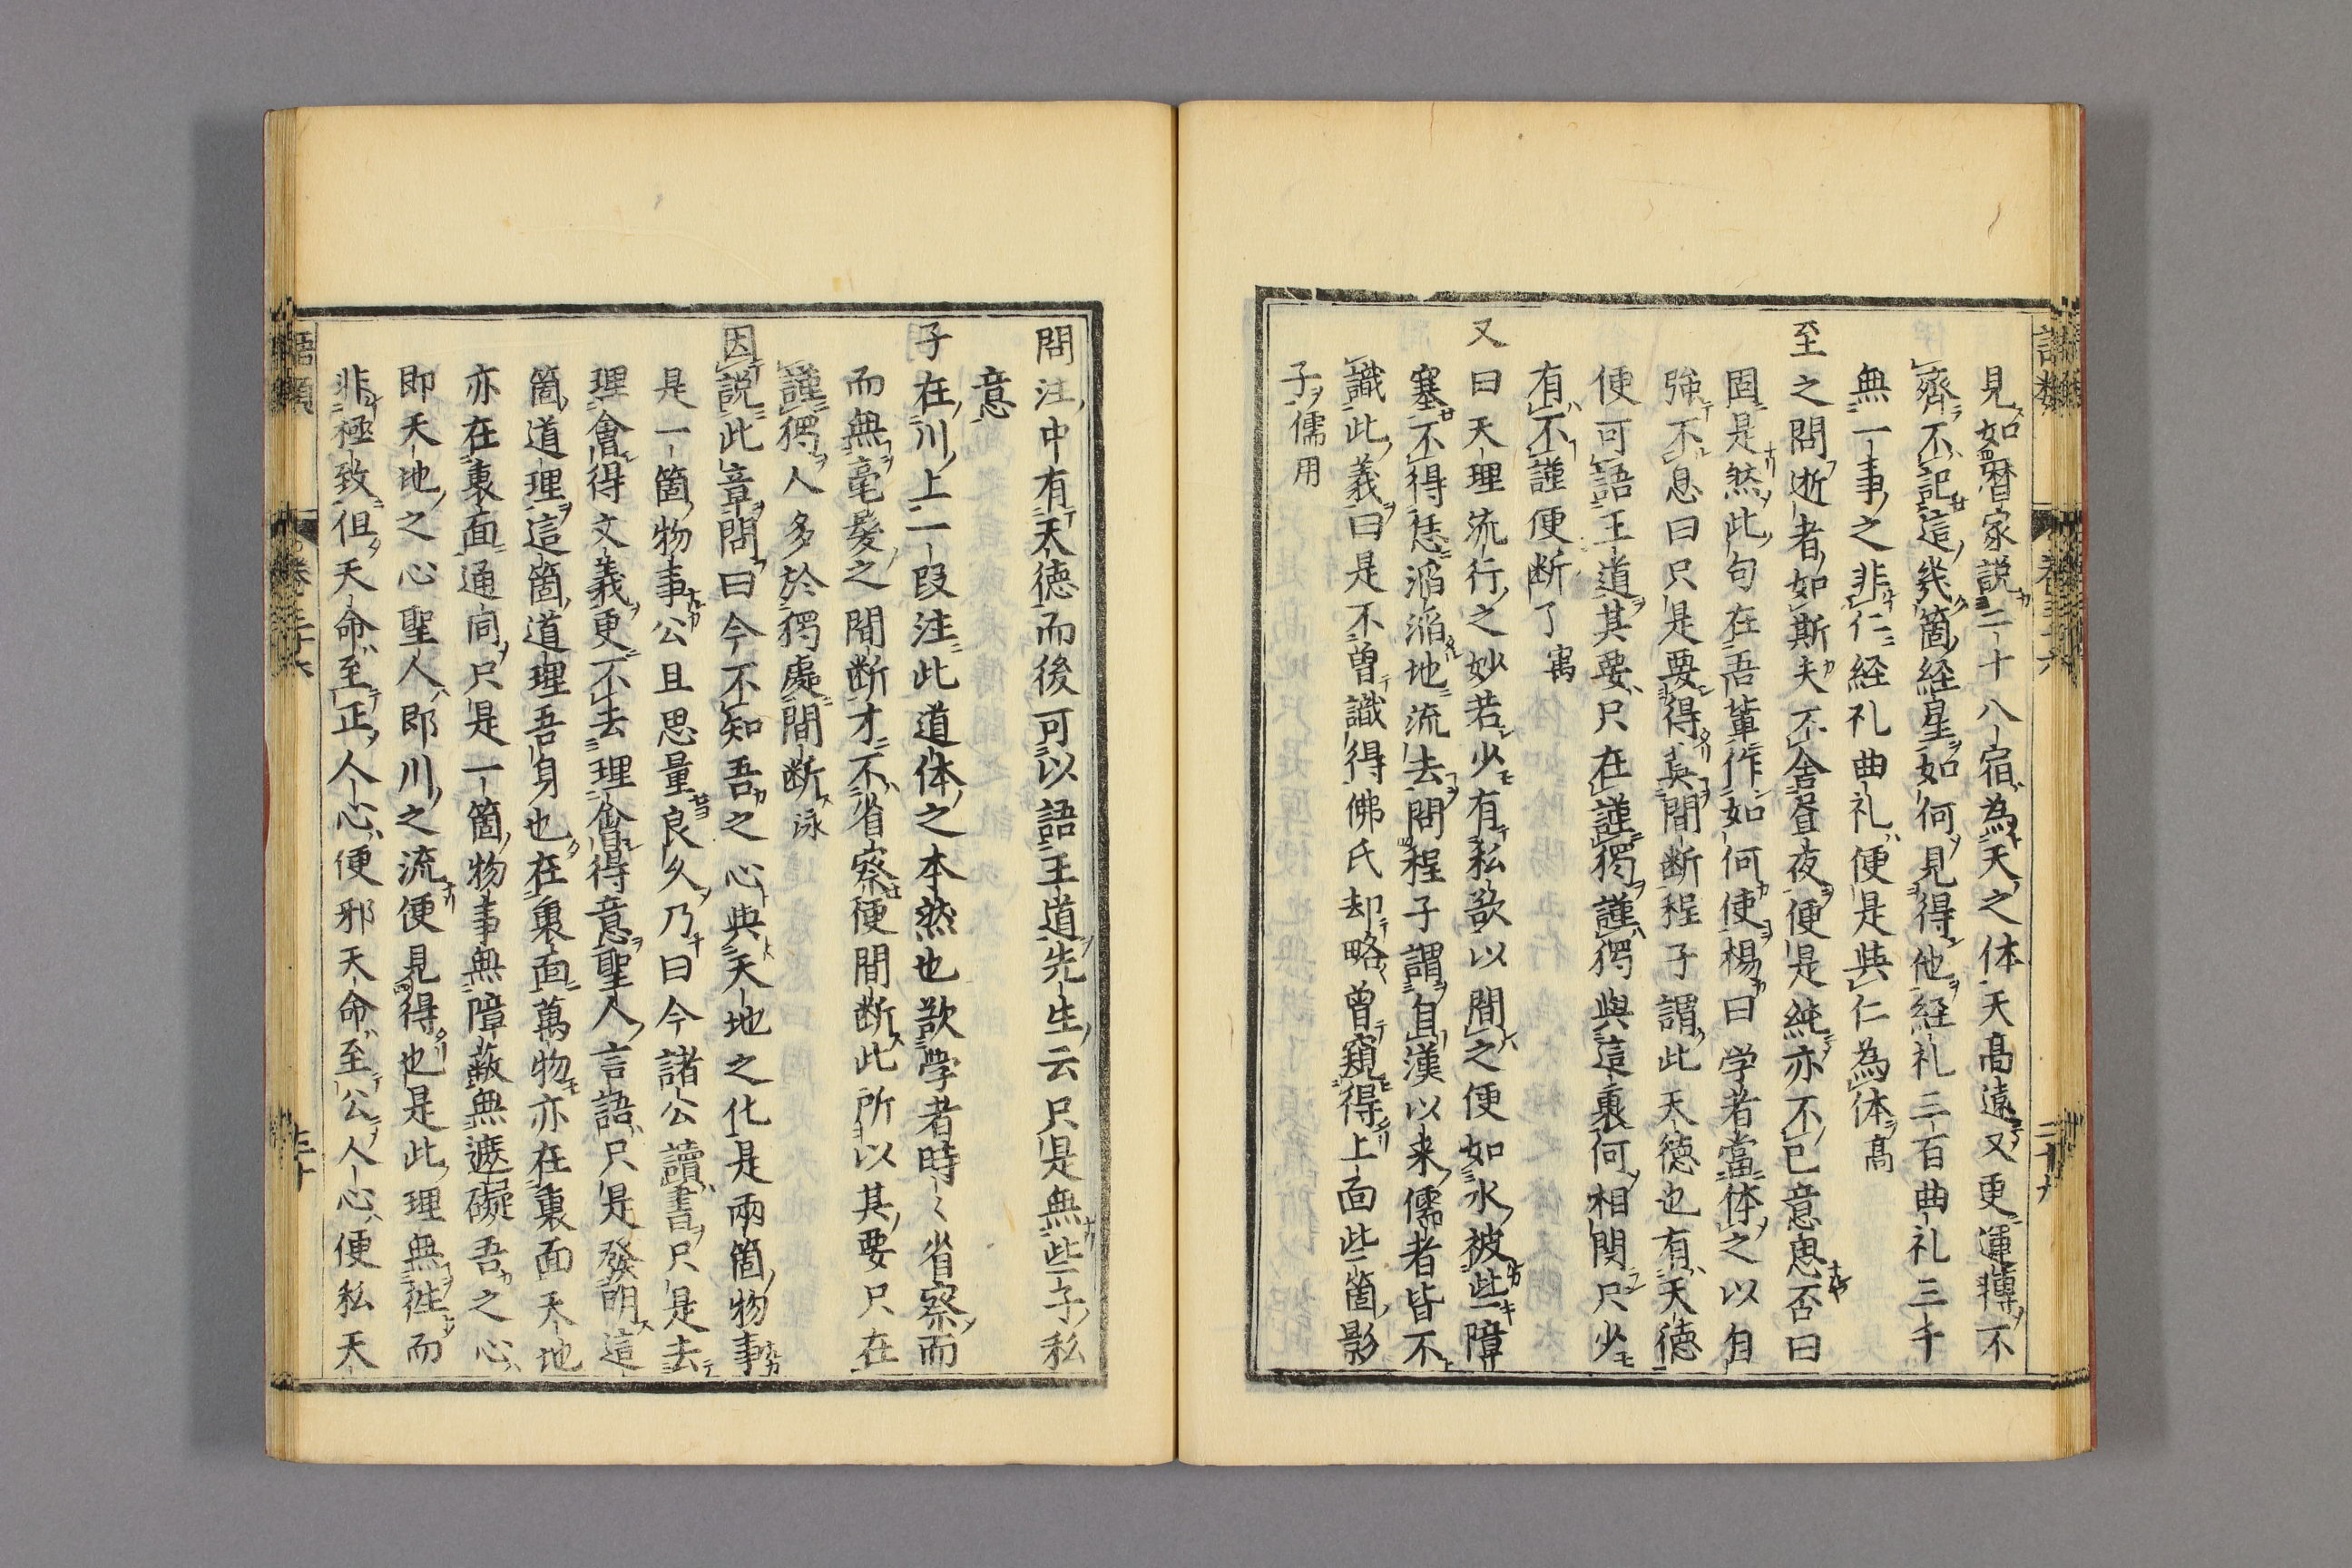 見如暦家説二十八宿為天之体天髙遠又更運轉不
齊不記這幾箇経星如何見得他経礼三百曲礼三千
無一事之非仁経礼曲礼便是與仁為体髙
至之問逝者如斯夫不舍昼夜便是純亦不已意思否曰
固是然此句在吾輩作如何使楊曰学者當体之以自
強不息曰只是要得莫間断程子謂此天徳也有天徳
便可語王道其要只在謹獨謹獨與這裏何相関只少
有不謹便断了㝢
又曰天理流行之妙若少有私欲以間之便如水被些障
塞不得恁滔滔地流去問程子謂自漢以来儒者皆不
識此義曰是不曽識得佛氏却略曽窺得上面些箇影
子儒用
問注中有天徳而後可以語王道先生云只是無些子私
意
子在川上一段注此道体之本然也欲学者時々省察而
而無毫髪之間断才不省察便間断此所以其要只在
謹獨人多於獨處間断泳
因説此章問曰今不知吾之心與天地之化是兩箇物事
是一箇物事公且思量良久乃曰今諸公讀書只是去
理會得文義更不去理會得意聖人言語只是發明這
箇道理這箇道理吾身也在裏面萬物亦在裏面天地
亦在裏面通同只是一箇物事無障蔽無遮礙吾之心
即天地之心聖人即川之流便見得也是此理無往而
非極致但天命至正人心便邪天命至公人心便私天